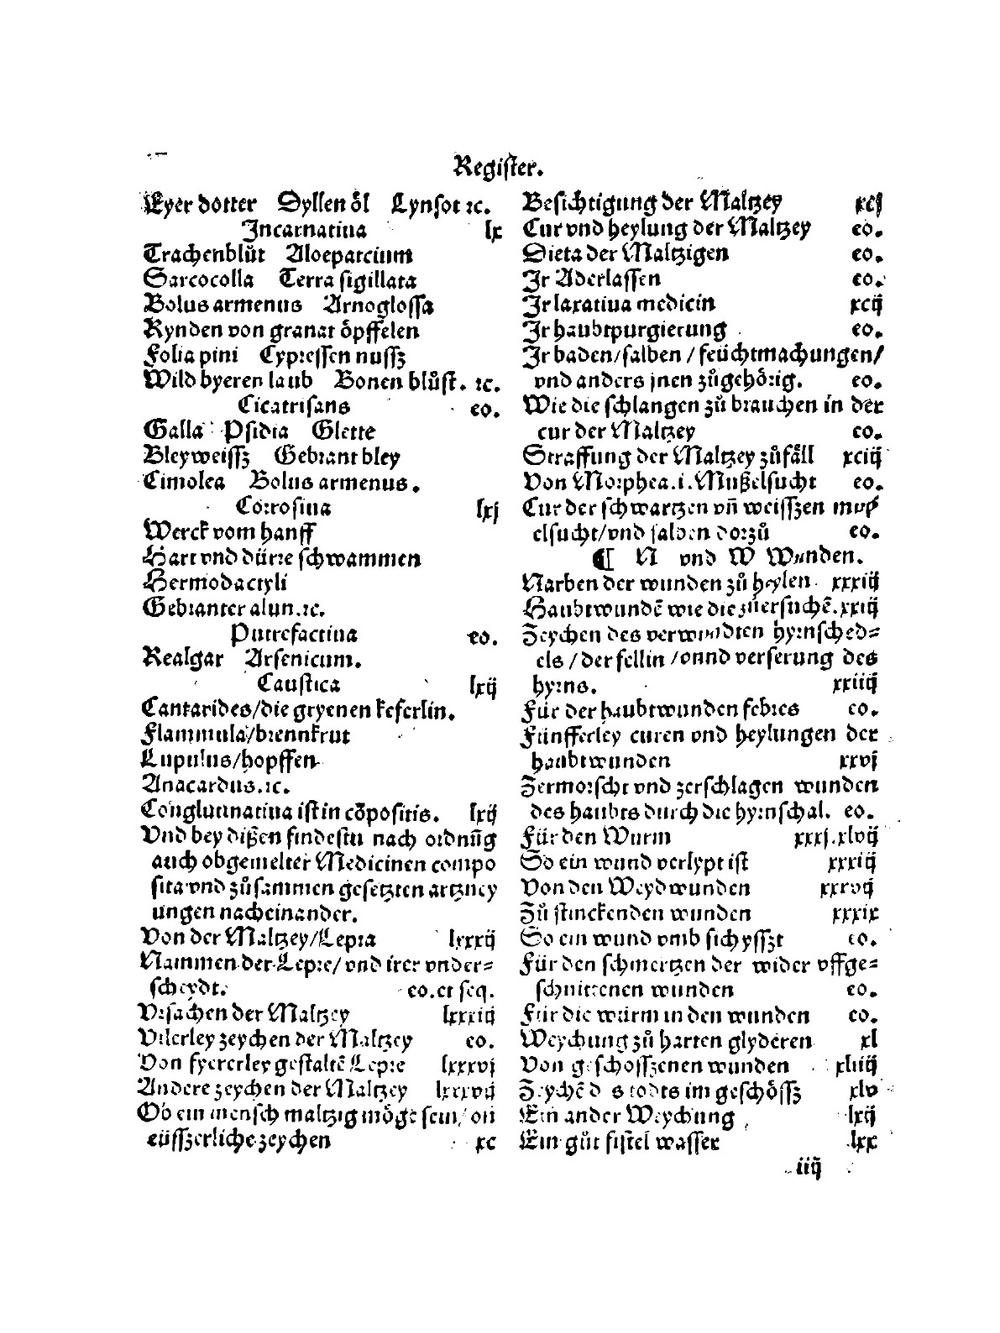 Register.
Eyer dotter Dyllen öl Lynsot ꝛc.
Incarnatiua lx
Trachenblůt Aloepaticum
Sarcocolla Terra sigillata
Bolus armenus Arnoglossa
Rynden von granat öpffelen
Folia pini Cypressen nussz
Wild byeren laub Bonen blůst. ꝛc.
Cicatrisans eo.
Galla Psidia Glette
Bleyweissz Gebrant bley
Cimolea Bolus armenus.
Corrosiua lxj
Werck vom hanff
Hart vnd dürre schwammen
Hermodactyli
Gebranter alun.ꝛc.
Putrefactiua eo.
Realgar Arsenicum.
Caustica lxij
Cantarides/die gryenen keferlin.
Flammula/brennkrut
Lupulus/hopffen
Anacardus.ꝛc.
Conglutinatiua ist in cōpositis. lxij
Vnd bey dißen findestu nach ordnūg
auch obgemelter Medicinen compo
sita vnd zůsammen gesetzten artzney
ungen nacheinander.
Von der Maltzey/Lepra lxxxij
Nammen der Lepre/ vnd irer vnder⸗
scheydt. eo.et seq.
Vrsachen der Maltzey lxxxiij
Vilerley zeychen der Maltzey eo.
Von fyererley gestaltē Lepre lxxxvj
Andere zeychen der Maltzey lxxxvij
Ob ein mensch maltzig möge sein/ on
eüsszerliche zeychen xc
Besichtigung der Maltzey xcj
Cur vnd heylung der Maltzey eo.
Dieta der Maltzigen eo.
Ir Aderlassen eo.
Ir laxatiua medicin xcij
Ir haubtpurgierung eo.
Ir baden/salben/feüchtmachungen/
vnd anders jnen zůgehörig. eo.
Wie die schlangen zů brauchen in der
cur der Maltzey eo.
Straffung der Maltzey zůfäll xciij
Von Morphea.i.Mußelsucht eo.
Cur der schwartzen vn̄ weisszen muß
elsucht/vnd salben dorzů eo.
¶ N vnd W Wunden.
Narben der wunden zů heylen xxxiij
Haubtwundē wie die zůersuchē. xxiij
Zeychen des verwundten hyrnsched⸗
els/der fellin/vnnd verserung des
hyrns. xxiiij
Für der haubtwunden febres eo.
Fünfferley curen vnd heylungen der
haubtwunden xxvj
Zermorscht vnd zerschlagen wunden
des haubts durch die hyrnschal. eo.
Für den Wurm xxxj.xlvij
So ein wund verlypt ist xxxiij
Von den Weydwunden xxxvij
Zů stinckenden wunden xxxix
So ein wund vmb sich ysszt eo.
Für den schmertzen der wider vffge⸗
schnittenen wunden eo.
Für die würm in den wunden eo.
Weychung zů harten glyderen xl
Von geschosszenen wunden xliiij
Zeychē des todts im geschössz xlv
Ein ander Weychung lxij
Ein gůt fistel wasser lxx
iij